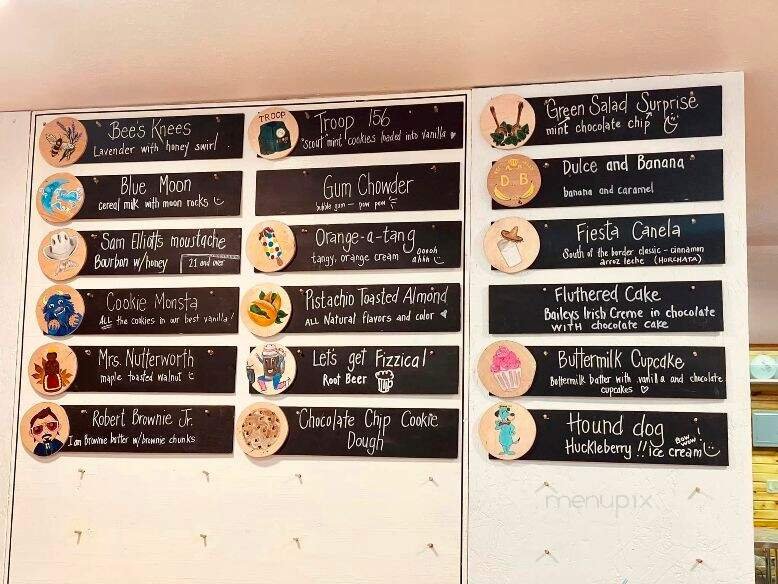 Bee's Knees
Lavender with honey swirl
Blue Moon
cereal milk with moon rocks
Sam Elliott's moustache
Bourbon w/honey 21 and over
Cookie Monsta
ALL the cookies in our best vanilla!
Mrs. Nutterworth
maple toasted walnut
Robert Brownie Jr.
I am Brownie batter w/brownie chunks
TROOP
Troop 156
"scout" mint cookies loaded into vanilla
Gum Chowder
bubble gum - pow pow
Orange-a-tang
tangy, orange cream ooooh
ahhh
Pistachio Toasted Almond
ALL Natural flavors and color
Let's get Fizzical
Root Beer
Chocolate Chip Cookie
Dough
Green Salad Surprise
mint chocolate chip
D B
Dulce and Banana
banana and caramel
Fiesta Canela
South of the border classic - cinnamon
arroz leche (HORCHATA)
Fluthered Cake
Baileys Irish Creme in chocolate
WITH chocolate cake
Buttermilk Cupcake
Buttermilk batter with vanilla and chocolate
cupcakes
Hound dog
Huckleberry !! ice cream!
menupix